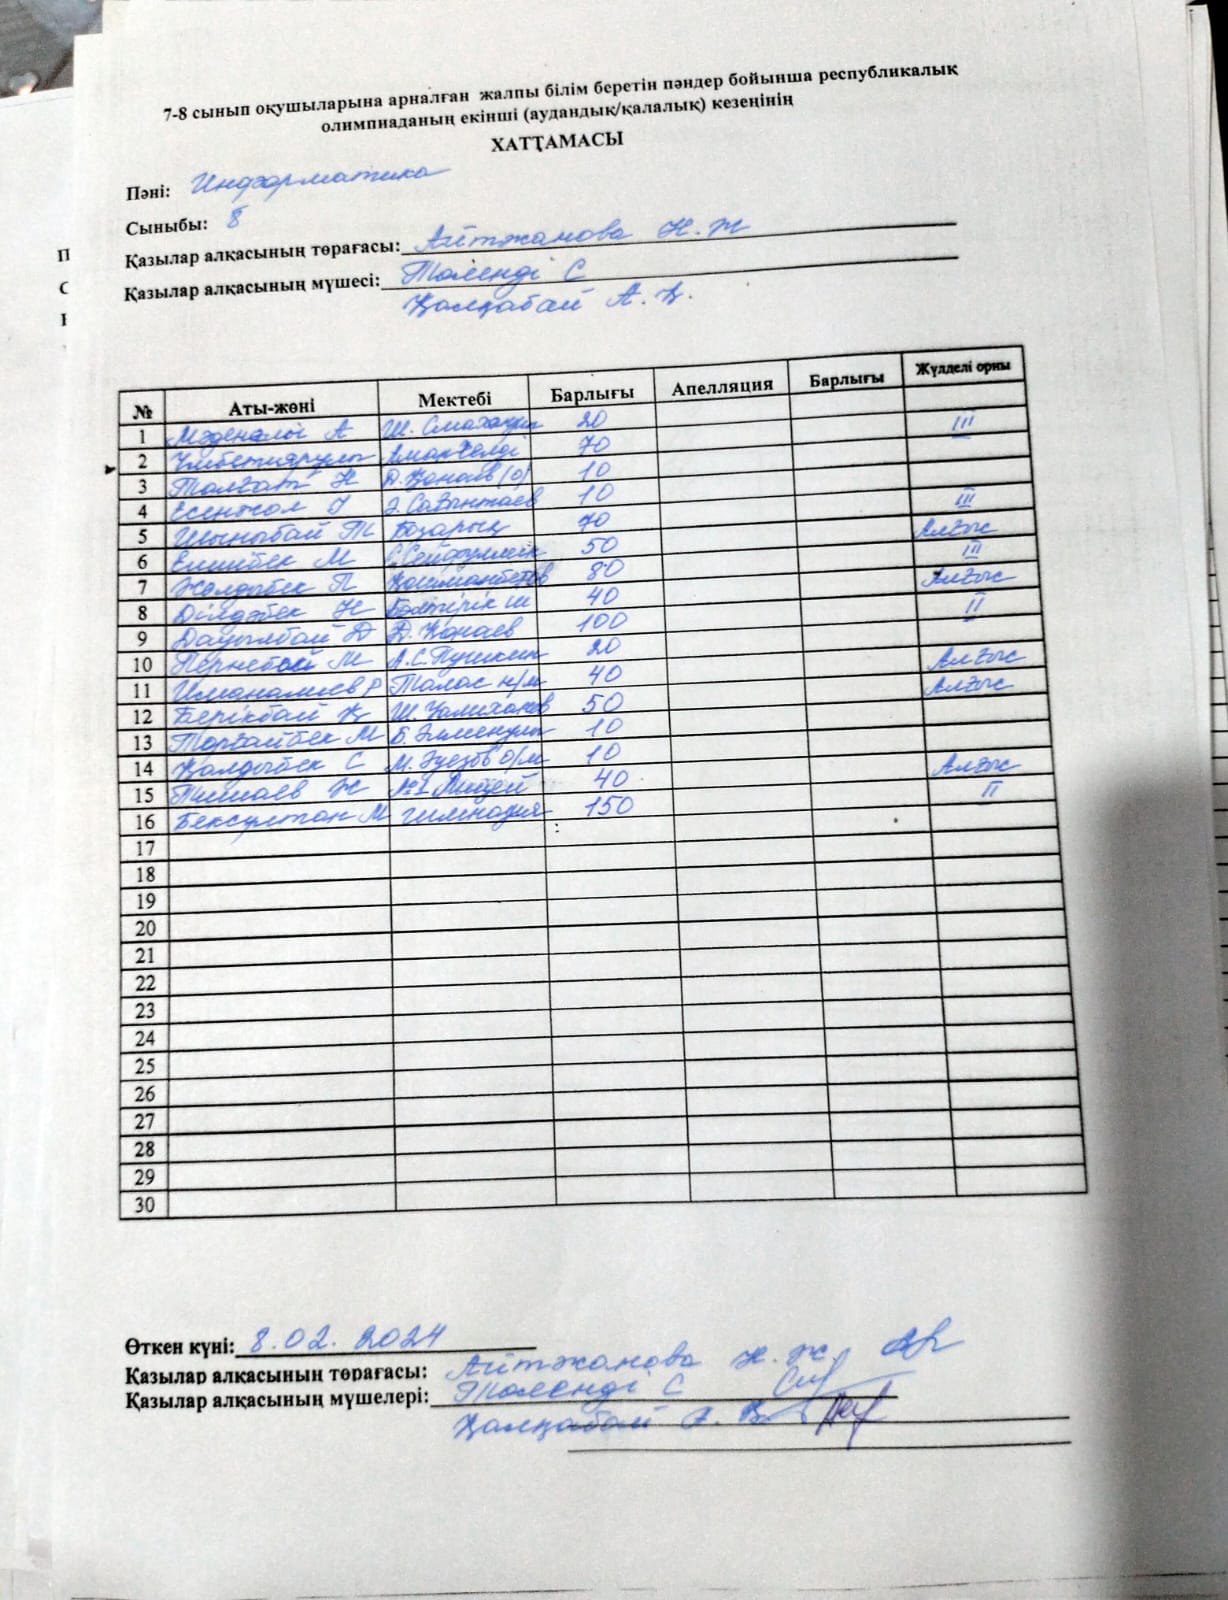 7-8 сынып оқушыларына арналған жалпы білім беретін пәндер бойынша республикалық
олимпиаданың екінші (аудандық/қалалық) кезеңінің
ХАТТАМАСЫ
Пәні: Информатика
Сыныбы: 8
Қазылар алқасының төрағасы: Айтжанова Н.Ж
Қазылар алқасының мүшесі: Төленді С
Қалқабай А.Қ.
№ Аты-жөні Мектебі Барлығы Апелляция Барлығы Жүлделі орны
1 Мәденәлі А Ш. 20
2 70 III
3 Талғат Н Д.Қонаев (о) 10
4 Есенжол 10
5 Шыныбай Т Бозарық 70 III
6 Ешибек М С.Сейфуллин 50 Алғыс
7 Жолдыбек П Қошманбетов 80 III
8 Ділдәбек Н Бөлтірік ш 40 Алғыс
9 Дауылбай Д Д.Қонаев 100 II
10 Пернебай М А.С.Пушкин 20
11 Иманалиев Р Талас н/м 40 Алғыс
12 Берікбай Қ Ш. Уалиханов 50 Алғыс
13 Торғайбек М Б. 10
14 Қалдыбек С М. Әуезов о/м 10
15 Ж №1 Лицей 40 Алғыс
16 Бексұлтан М гимназия 150 II
17
18
19
20
21
22
23
24
25
26
27
28
29
30
Өткен күні: 8.02.2024
Қазылар алқасының төрағасы: Айтжанова Н.Ж.
Қазылар алқасының мүшелері: Төленді С
Қалқабай А.Қ